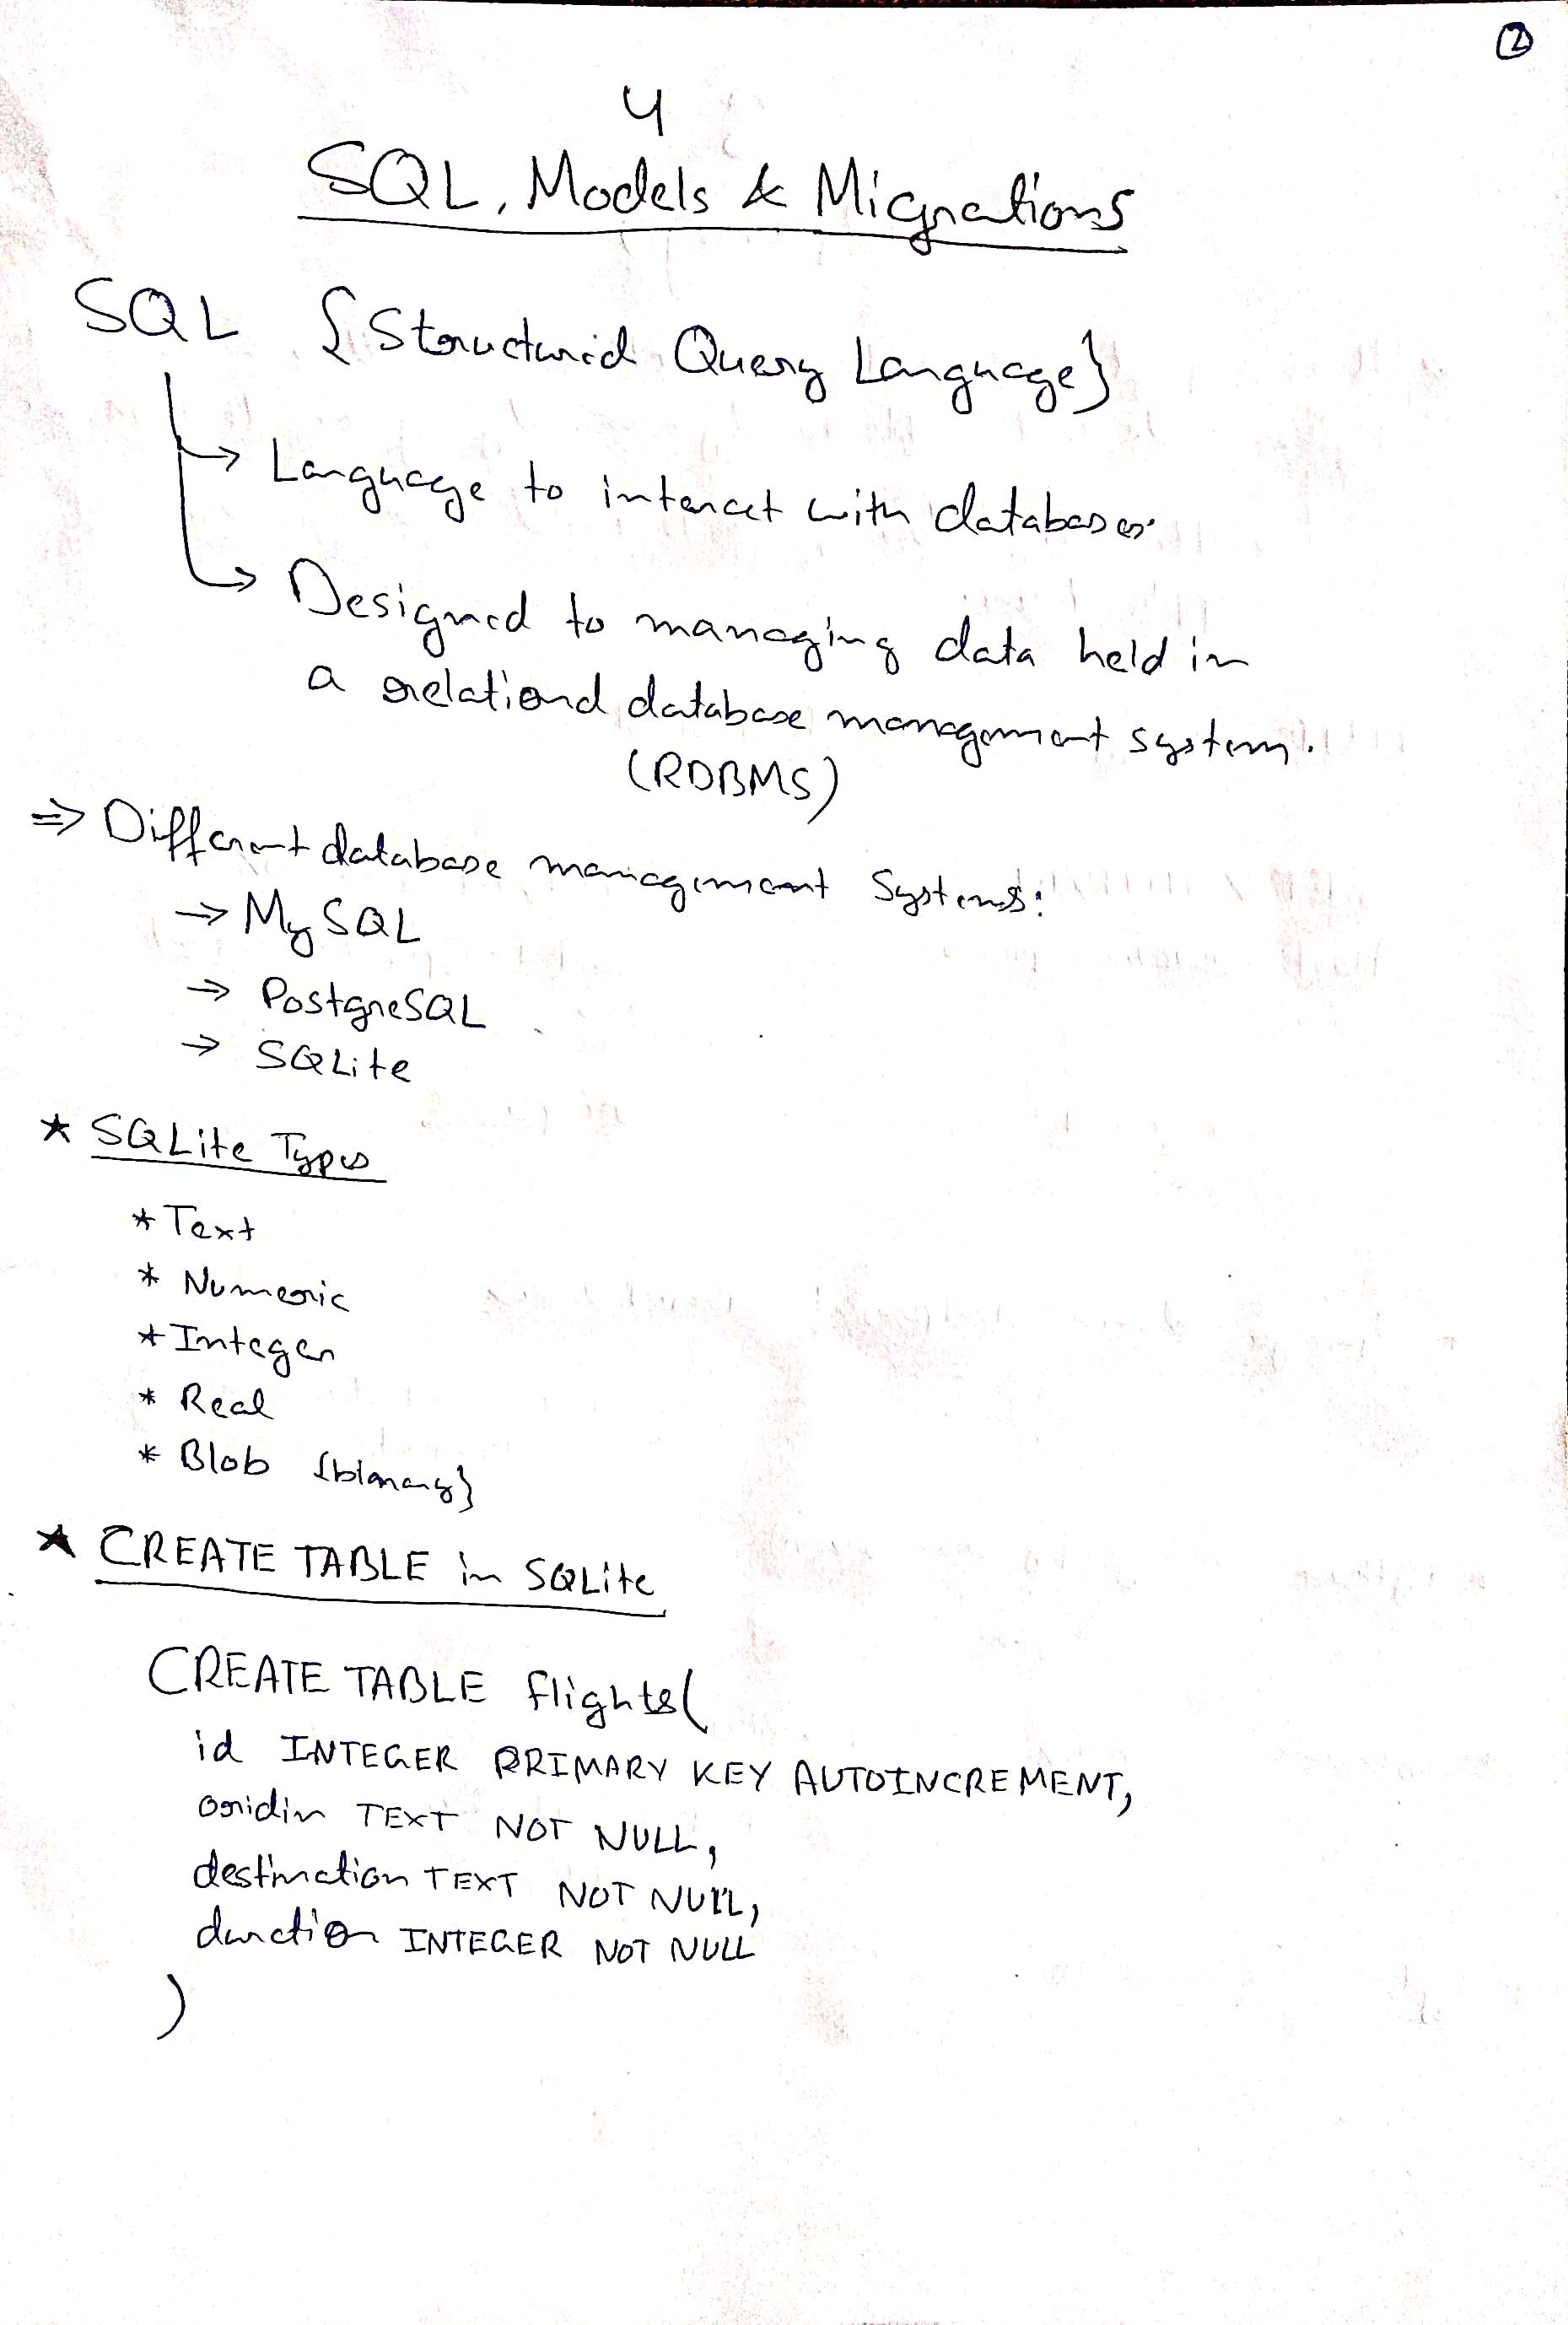 2
4
SQL, Models & Migrations
SQL {Structured Query Language}
→ Language to interact with databases.
→ Designed to managing data held in
a relational database management system.
(RDBMS)
⇒ Different database management Systems:
→ MySQL
→ PostgreSQL
→ SQLite
* SQLite Types
* Text
* Numeric
* Integer
* Real
* Blob {binary}
* CREATE TABLE in SQLite
CREATE TABLE flights(
id INTEGER PRIMARY KEY AUTOINCREMENT,
oridin TEXT NOT NULL,
destination TEXT NOT NULL,
duration INTEGER NOT NULL
)